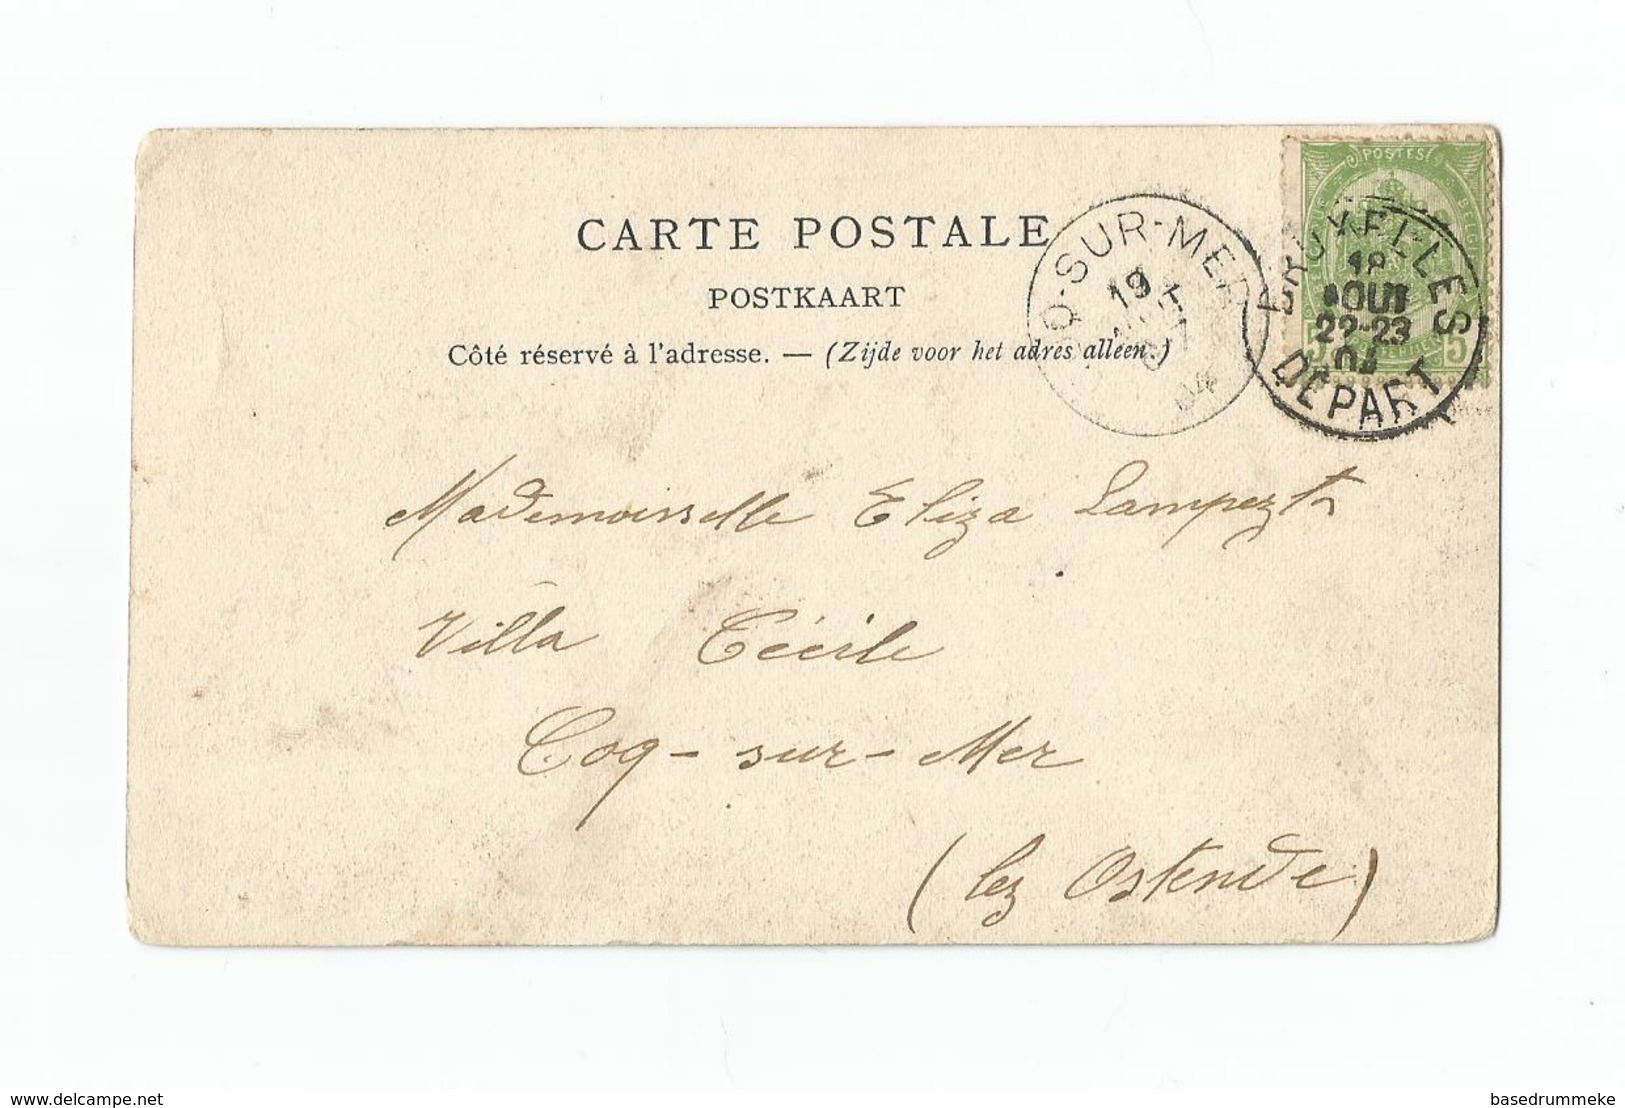 CARTE POSTALE
POSTKAART
Côté réservé à l'adresse. — (Zijde voor het adres alleen.)
Q-SUR-MER
19
04
POSTES
BRUXELLES
18
AOUT
22-23
04
DEPART
5
5
Mademoiselle Eliza
Villa Cécile
Coq-sur-Mer
(lez Ostende)
www.delcampe.net
basedrummeke